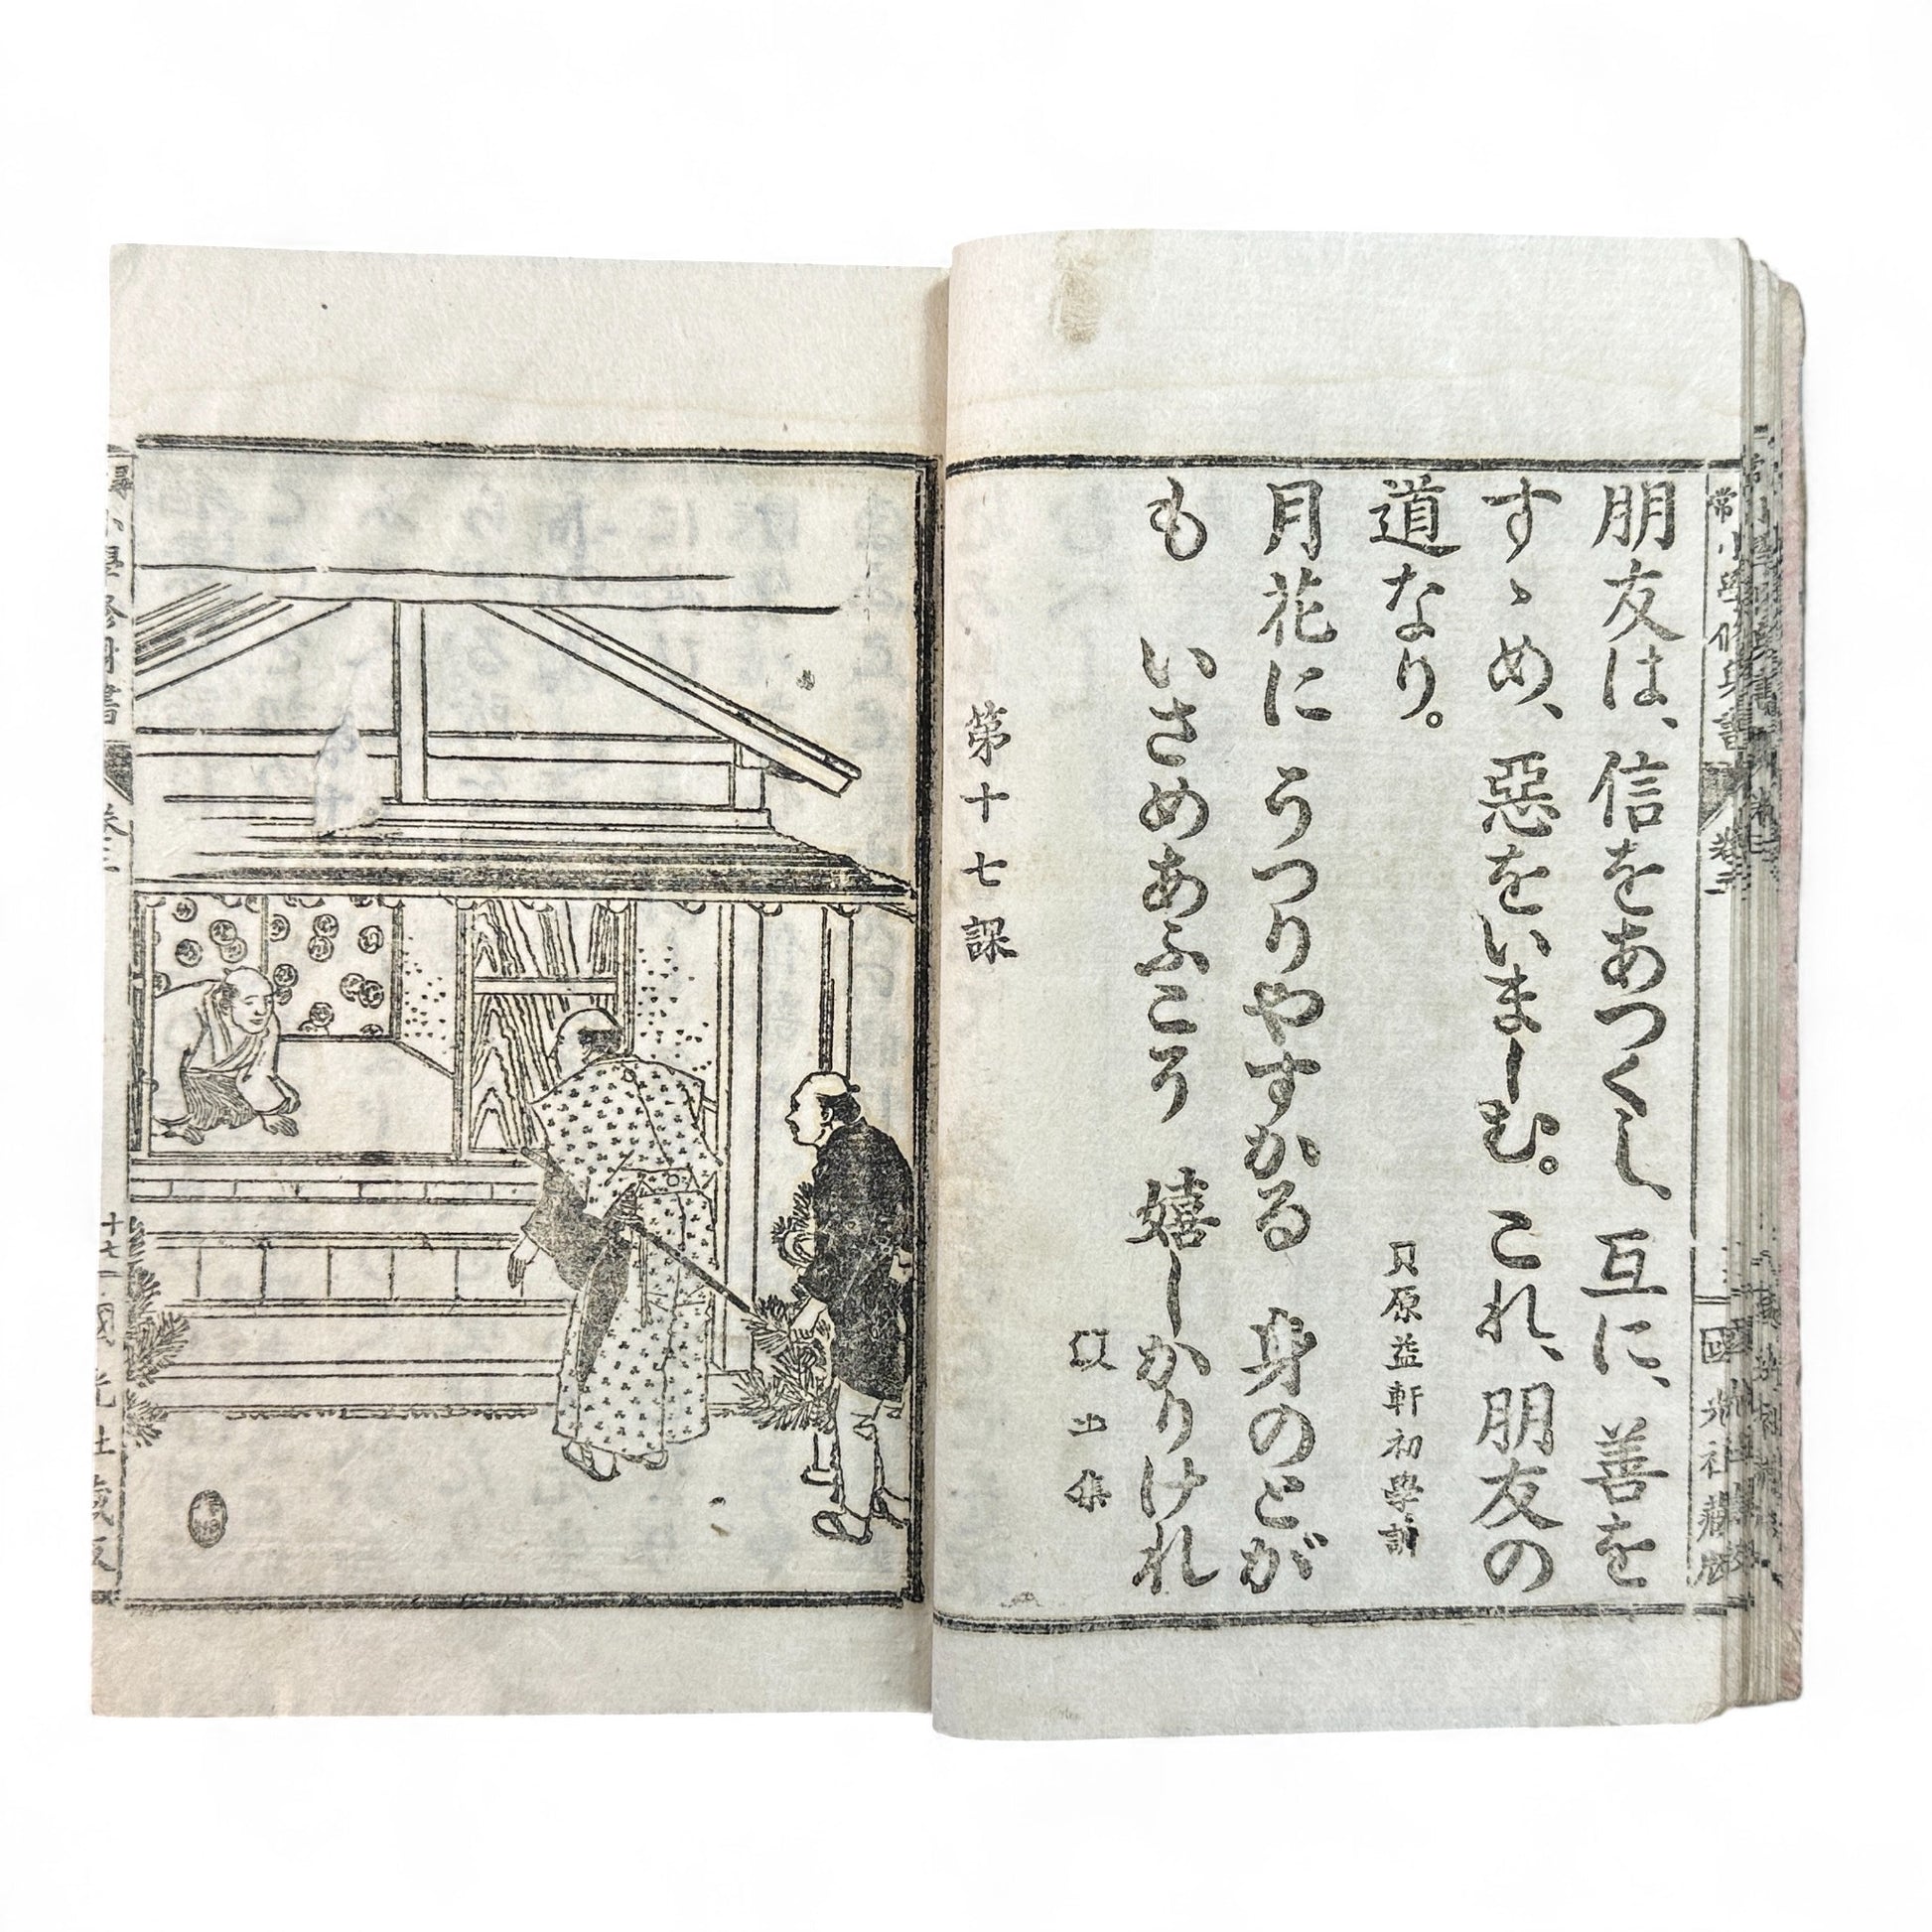 朋友は、信をあつくし、互に、善を
すゝめ、惡をいましむ。これ、朋友の
道なり。
貝原益軒初學訓
月花に うつりやすかる 身のとが
も いさめあふこそ 嬉しかりけれ
第十七課
常小學修身書
卷三
國光社藏版
小學修身書
卷三
十七
國光社藏版